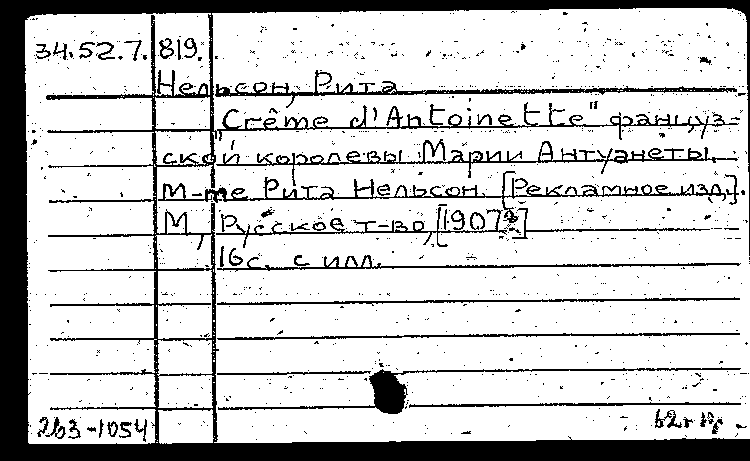 34.52.7.819.
Нельсон, Рита
"Crême d'Antoinette" фанцуз-
ской королевы Марии Антуанеты.
М-me Рита Нельсон. [Рекламное изд.].
М, Русское т-во, [1907?]
16с. с илл.
263-1054